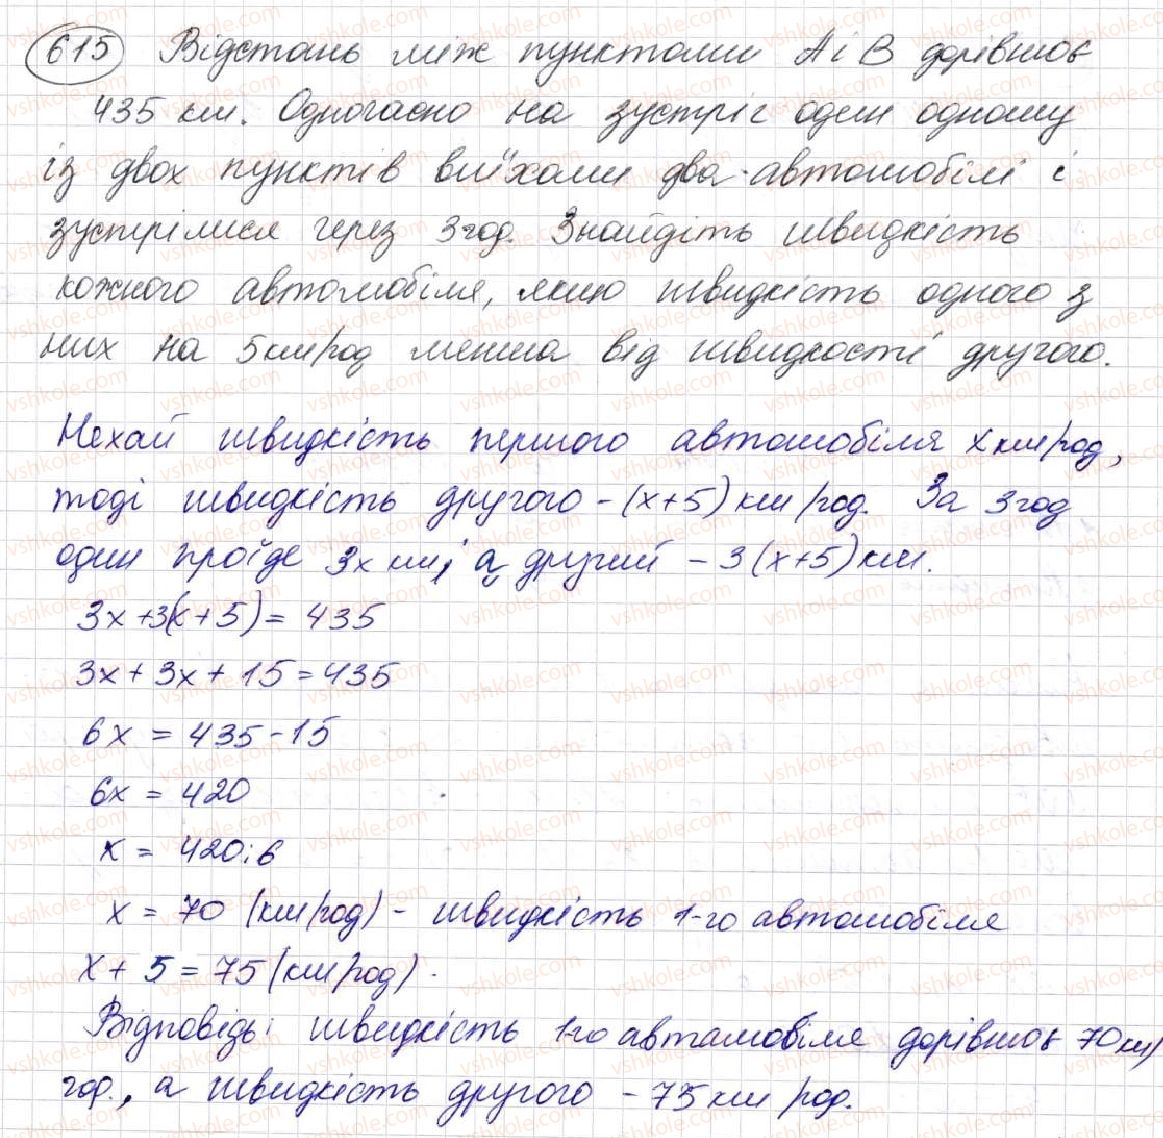 615 Відстань між пунктами А і В дорівнює
435 км. Одночасно на зустріч один одному
із двох пунктів виїхали два автомобілі і
зустрілися через 3 год. Знайдіть швидкість
кожного автомобіля, якщо швидкість одного з
них на 5 км/год менша від швидкості другого.
Нехай швидкість першого автомобіля x км/год,
тоді швидкість другого - (x+5) км/год. За 3 год
один проїде 3x км, а другий - 3(x+5) км.
3x+3(x+5)= 435
3x+3x+15=435
6x = 435-15
6x = 420
x = 420:6
x = 70 (км/год) - швидкість 1-го автомобіля
x+5=75 (км/год).
Відповідь: швидкість 1-го автамобіля дорівнює 70 км/
год., а швидкість другого - 75 км/год.